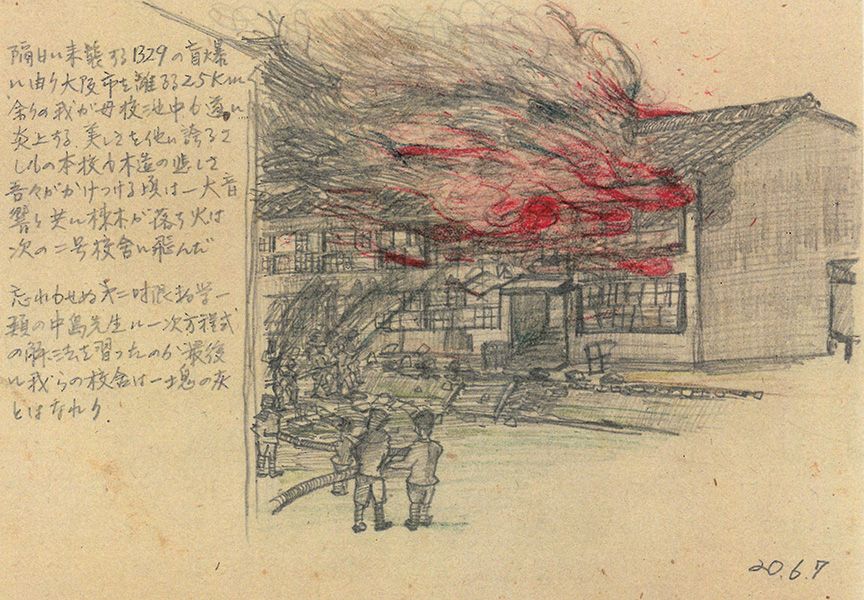 隔日に来襲するB29の盲爆
に由り大阪市を離るる25Kmに
余りの我が母校池中も遂に
炎上する。美しさを他に誇るさ
しもの本校も木造の悲しさ
吾々がかけつける頃は一大音
響と共に棟木が落ち火は
次の二号校舎に飛んだ
忘れもせぬ第二時限数学一
類の中島先生に一次方程式
の解法を習ったのが最後
に我らの校舎は一塊の灰
とはなれり
20.6.7